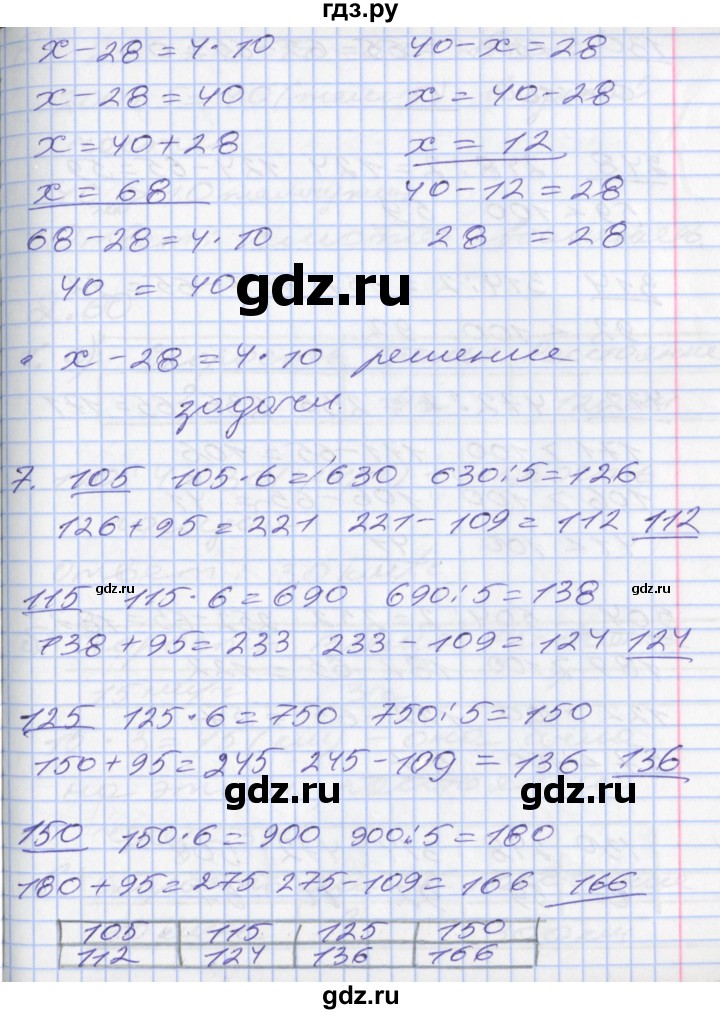 гдз.ру
x - 28 = 4 · 10    40 - x = 28
x - 28 = 40    x = 40 - 28
x = 40 + 28    x = 12
x = 68    40 - 12 = 28
68 - 28 = 4 · 10    28 = 28
40 = 40
gdz.ru
• x - 28 = 4 · 10 решение
задачи.
7. 105 105 · 6 = 630 630 : 5 = 126
126 + 95 = 221 221 - 109 = 112 112
gdz.ru gdz.ru
115 115 · 6 = 690 690 : 5 = 138
138 + 95 = 233 233 - 109 = 124 124
125 125 · 6 = 750 750 : 5 = 150
150 + 95 = 245 245 - 109 = 136 136
gdz.ru gdz.ru
150 150 · 6 = 900 900 : 5 = 180
180 + 95 = 275 275 - 109 = 166 166
105 115 125 150
112 124 136 166
gdz.ru